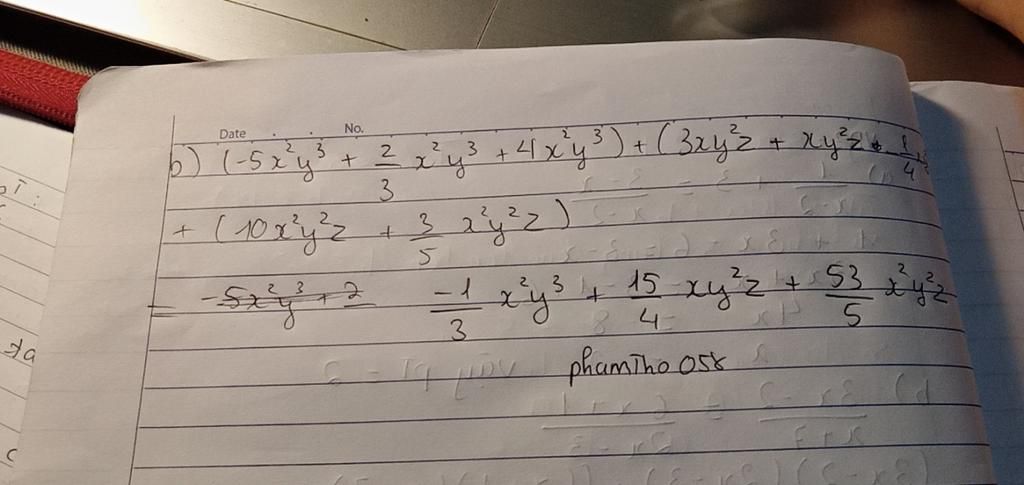 Date . . No.
b) (-5x²y³ + 2/3 x²y³ + 4x²y³) + (3xy²z + xy²z
+ (10x²y²z + 3/5 x²y²z)
= -5x²y³ + 2 -1/3 x²y³ + 15/4 xy²z + 53/5 x²y²z
phamtho058